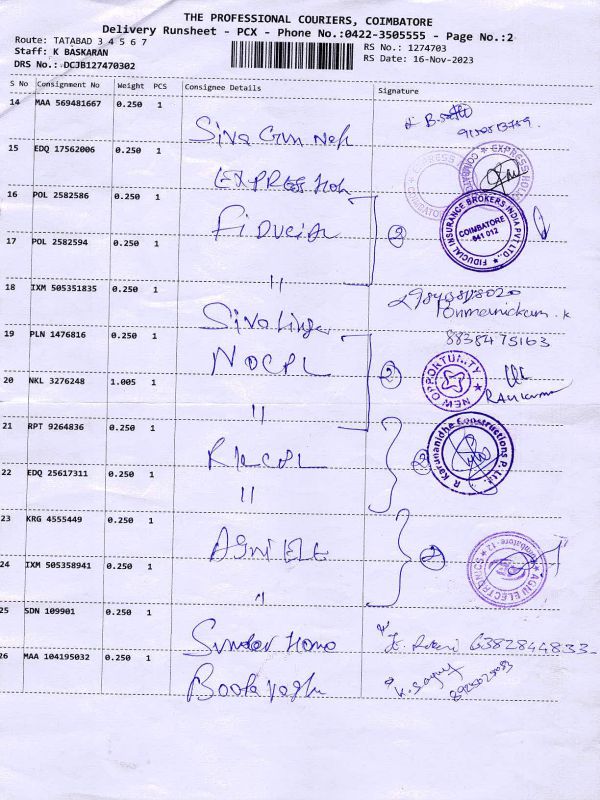 THE PROFESSIONAL COURIERS, COIMBATORE
Delivery Runsheet - PCX - Phone No.:0422-3505555 - Page No.:2
Route: TATABAD 3 4 5 6 7
Staff: K BASKARAN
DRS No.: DCJB127470302
RS No.: 1274703
RS Date: 16-Nov-2023
S No Consignment No Weight PCS Consignee Details Signature
14 MAA 569481667 0.250 1
15 EDQ 17562006 0.250 1
EXPRESS
16 POL 2582586 0.250 1
Fiducial 2
FIDUCIAL INSURANCE BROKERS INDIA PVT. LTD.
COIMBATORE
641 012
17 POL 2582594 0.250 1
"
18 IXM 505351835 0.250 1
Sivalinga
19 PLN 1476816 0.250 1
8838475163
NOCPL 2
NEW OPPORTUNITY
20 NKL 3276248 1.005 1
"
21 RPT 9264836 0.250 1
2
R. Karunanidhe Constructions P. Ltd.
22 EDQ 25617311 0.250 1
"
23 KRG 4555449 0.250 1
Agni Ele 2
AGNI ELECTRONICS
Coimbatore - 12
24 IXM 505358941 0.250 1
"
25 SDN 109901 0.250 1
Sundar Homo 6382844833
26 MAA 104195032 0.250 1